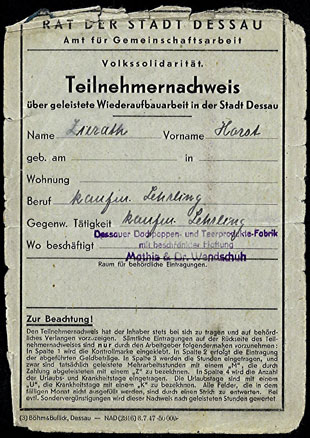 RAT DER STADT DESSAU
Amt für Gemeinschaftsarbeit
Volkssolidarität.
Teilnehmernachweis
über geleistete Wiederaufbauarbeit in der Stadt Dessau
Name Zierath Vorname Horst
geb. am in
Wohnung
Beruf kaufm. Lehrling
Gegenw. Tätigkeit kaufm. Lehrling
Dessauer Dachpappen- und Teerprodukte-Fabrik
Wo beschäftigt mit beschränkter Haftung
Mathis & Dr. Wandschuh
Raum für behördliche Eintragungen.
Zur Beachtung!
Den Teilnehmernachweis hat der Inhaber stets bei sich zu tragen und auf behörd-
liches Verlangen vorzuzeigen. Sämtliche Eintragungen auf der Rückseite des Teil-
nehmernachweises sind durch den Arbeitgeber folgendermaßen vorzunehmen:
In Spalte 1 wird die Kontrollmarke eingeklebt. In Spalte 2 erfolgt die Eintragung
der abgeführten Geldbeträge. In Spalte 3 werden die Stunden eingetragen, und
zwar sind tatsächlich geleistete Mehrarbeitsstunden mit einem „M", die durch
Geldablösung mit einem „Z" zu bezeichnen. In Spalte 4 wird die Anzahl der
Urlaubs- und Krankheitstage eingetragen. Die Urlaubstage sind mit einem
„U", die Krankheitstage mit einem „K" zu bezeichnen. Alle Felder, die in dem
fälligen Monat nicht ausgefüllt werden, sind durch einen Strich zu entwerten. Bei
evtl. Sondervergünstigungen wird dieser Nachweis nach geleisteten Stunden gewertet
(3) Böhm & Bullick, Dessau — NAD 8. 7. 47 50 000